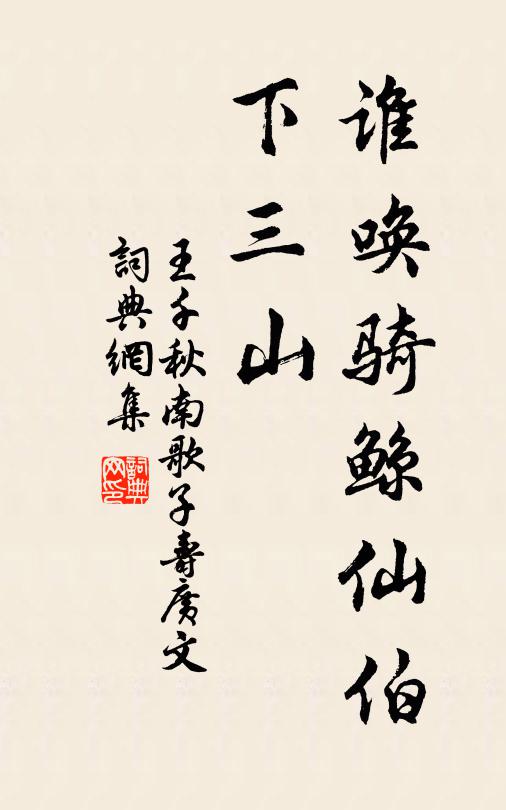 谁唤骑鲸仙伯
下三山
王千秋南歌子寿廣文
詞典網集
詞典网印